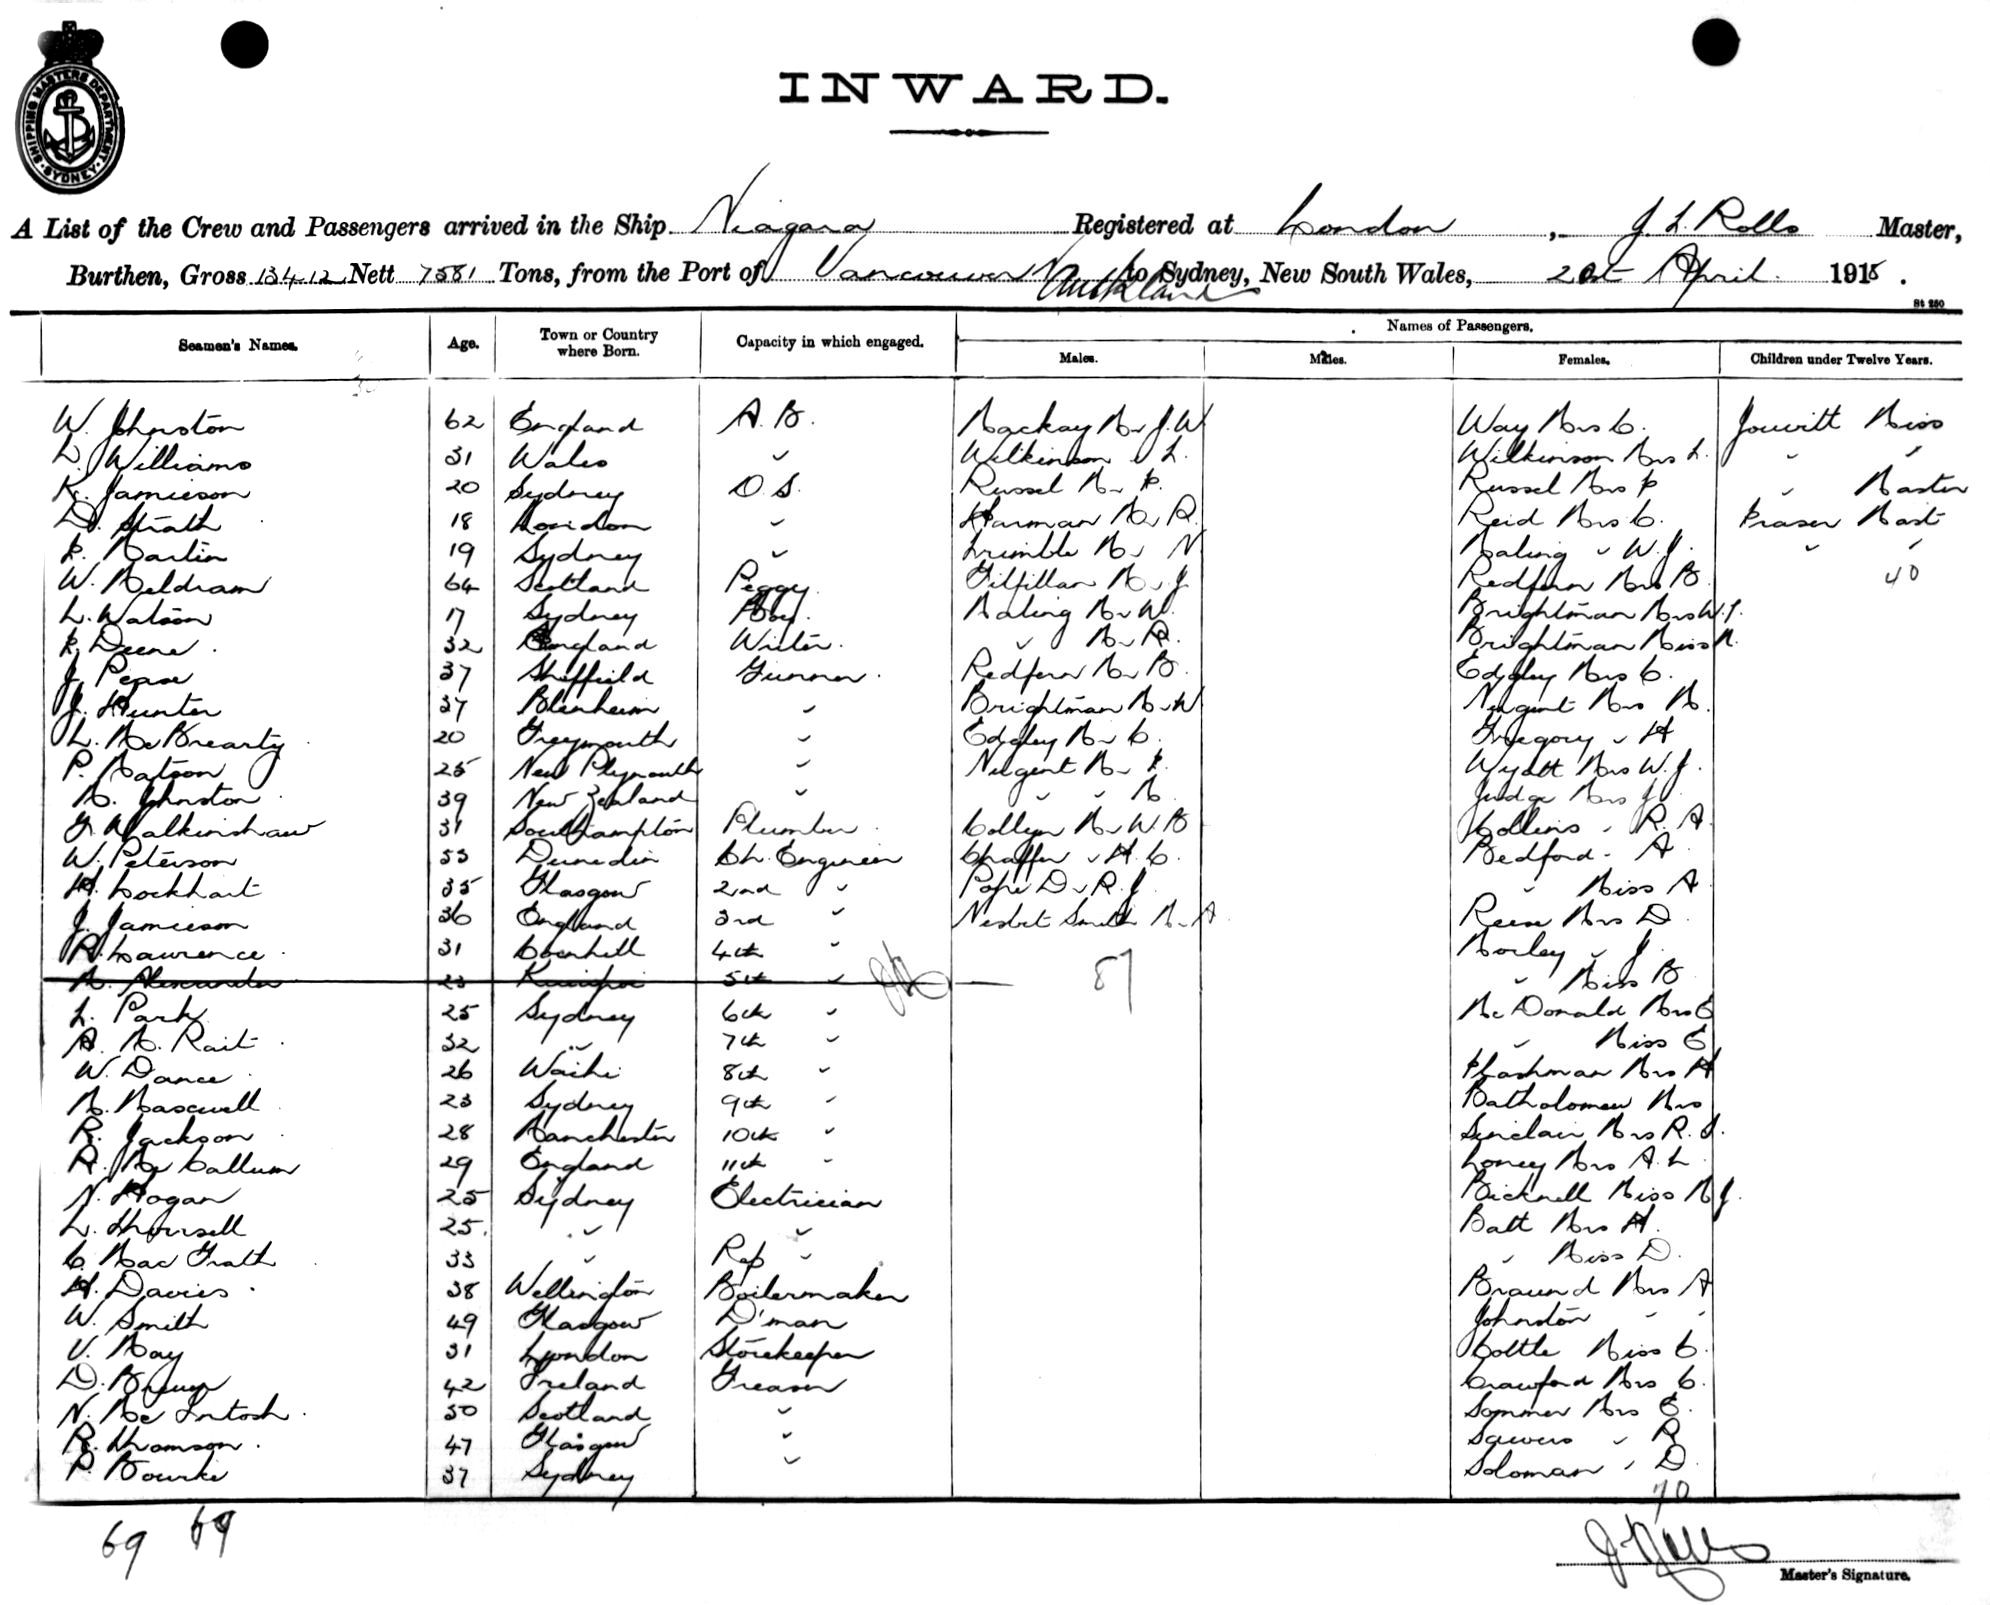 SHIPPING MASTERS DEPARTMENT
SYDNEY
INWARD.
A List of the Crew and Passengers arrived in the Ship Niagara Registered at London , J. L. Rolls Master,
Burthen, Gross 13412 Nett 7581 Tons, from the Port of Vancouver Auckland to Sydney, New South Wales, April 1915.
St 250
Names of Passengers.
Seamen's Names. Age. Town or Country where Born. Capacity in which engaged. Males. Males. Females. Children under Twelve Years.
W. Johnston 62 England A.B. Mackay Mr J.W Way Mrs C. Jowitt Miss
L. Williams 31 Wales " Wilkinson " L. Wilkinson Mrs L. " "
K. Jamieson 20 Sydney O.S. Russel Mr F. Russel Mrs F " Master
D. Strath 18 London " Harman Mr R. Reid Mrs C. Fraser Mast
F. Martin 19 Sydney " Trimble Mr N Maling " W.J. " "
W. Meldram 64 Scotland Peggy Gilfillan Mr J Redfern Mrs B. 40
L. Watson 17 Sydney Boy. Maling Mr W. Brightman Mrs W.
F. Deene 32 England Writer. " Mr R. Brightman Miss M.
J. Pepse 37 Sheffield Gunner. Redfern Mr B. Edgley Mrs C.
J. Hunter 37 Blenheim " Brightman Mr W Nugent Mrs M.
L. McBrearty 20 Greymouth " Edgley Mr C. Gregory " H
P. Matson 25 New Plymouth " Nugent Mr F. Wyatt Mrs W.J.
M. Johnston 39 New Zealand " " " M Judge Mrs J
G. Walkinshaw 31 Southampton Plumber. Collyn Mr W.B Collins " R.A
W. Peterson 53 Dunedin Ch. Engineer Chaffer " H.C. Bedford " A
H. Lockhart 35 Glasgow 2nd " Pope Dr R.J. " Miss A
J. Jamieson 36 England 3rd " Nesbit Smith Mr A Reese Mrs D.
R. Lawrence 31 Cornhill 4th " Morley " J.
M. Alexander 23 5th " 87 " Miss B
L. Park 25 Sydney 6th " McDonald Mrs E
A. M. Rait 32 " 7th " " Miss E
W. Dance 26 Waihi 8th " Flashman Mrs H
M. Maxwell 23 Sydney 9th " Batholomew Mrs
R. Jackson 28 Manchester 10th " Sinclair Mrs R. J.
R. McCallum 29 England 11th " Loney Mrs A. L.
N. Hogan 25 Sydney Electrician Bicknell Miss M J.
L. Thirsell 25 " " Batt Mrs H.
C. MacGrath 33 " Ref " " Miss D.
H. Davies 38 Wellington Boilermaker Braund Mrs A
W. Smith 49 Glasgow D'man Johnston " "
V. May 31 London Storekeeper Cottle Miss C.
D. 42 Ireland Greaser Crawford Mrs C.
N. McIntosh 50 Scotland " Sommer Mrs E.
R. Thomson 47 Glasgow " Sawers " R
P. Bourke 37 Sydney " Soloman " D.
69 69
Master's Signature.